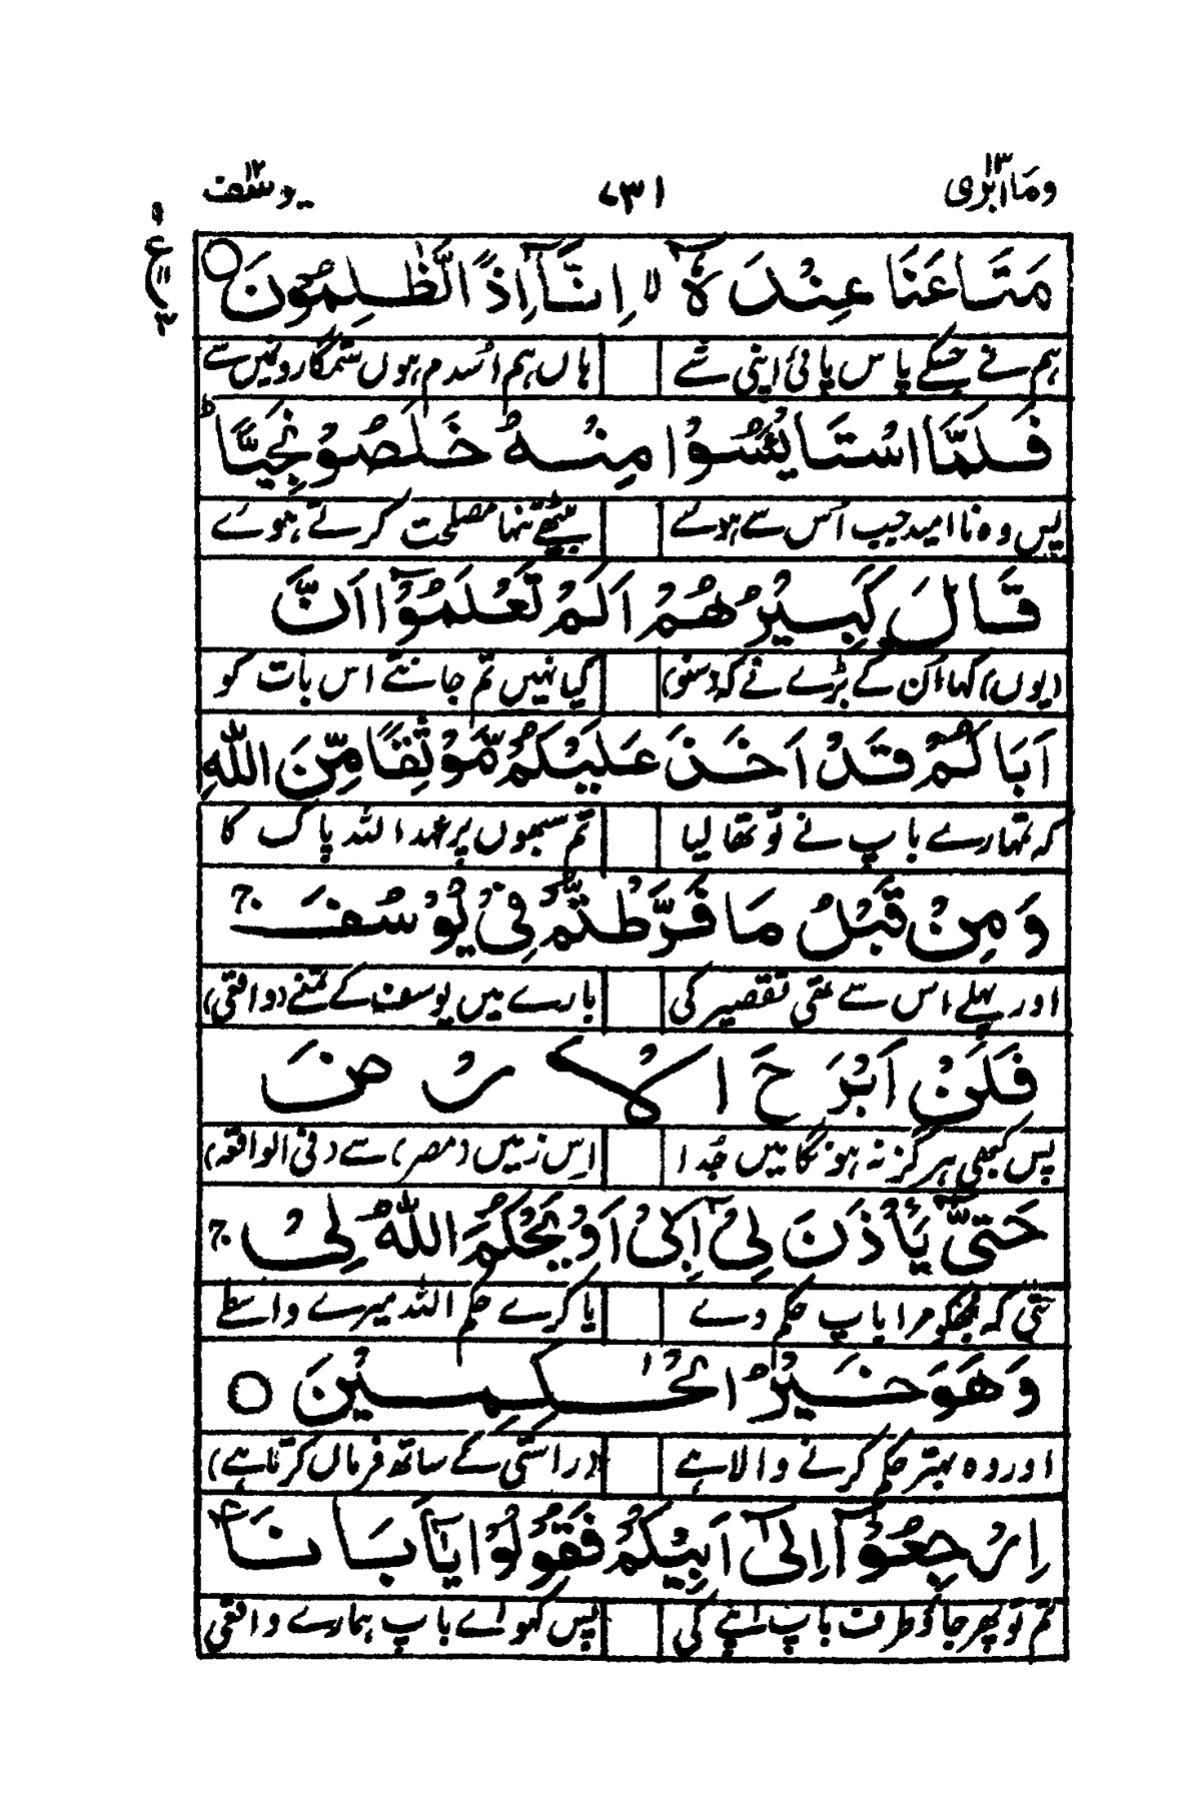 وما ابری ١٣ ٧٣١ یوسف ١٢
٩ ع ١١ ٣
مَتَاعَنَا عِنْدَہٗۤ ۙ اِنَّاۤ اِذًا لَّظٰلِمُوْنَ ○
ہم نے جسکے پاس پائی اپنی شے ہاں ہم اُسدم ہوں ستمگارونمیں سے
فَلَمَّا اسْتَایْئَسُوْا مِنْہُ خَلَصُوْ نَجِیًّا ؕ
پس وہ نا امید جب اُس سے ہوئے بیٹھے تنہا مصلحت کرتے ہوئے
قَالَ کَبِیْرُھُمْ اَلَمْ تَعْلَمُوْۤا اَنَّ
(یوں) کہا اُن کے بڑے نے کہ (سنو) کیا نہیں تم جانتے اس بات کو
اَبَاکُمْ قَدْ اَخَذَ عَلَیْکُمْ مَّوْثِقًا مِّنَ اللّٰہِ
کہ تمہارے باپ نے تو تھا لیا تم سبھوں پر عہد اللہ پاک کا
وَمِنْ قَبْلُ مَا فَرَّطْتُّمْ فِیْ یُوْسُفَ ۚ
اور پہلے اس سے تھی تقصیر کی بارے میں یوسف کے تمنے (واقعی)
فَلَنْ اَبْرَحَ الْاَرْضَ
پس کبھی ہر گز نہ ہونگا میں جُدا اِس زمیں (مصر) سے (فی الواقعہ)
حَتّٰی یَاْذَنَ لِیْۤ اَبِیْۤ اَوْ یَحْکُمَ اللّٰہُ لِیْ ۚ
حتی کہ مجھکو مرا باپ حکم دے یا کرے حکم اللہ میرے واسطے
وَھَوَ خَیْرُ الْحٰکِمِیْنَ ○
اور وہ بہتر حکم کرنے والا ہے (راستی کے ساتھ فرماں کرتا ہے)
اِرْجِعُوْۤا اِلٰۤی اَبِیْکُمْ فَقُوْلُوْا یٰۤاَبَانَاۤ
تم تو پھر جاؤ طرف باپ اپنے کی پس کہو اے باپ ہمارے واقعی